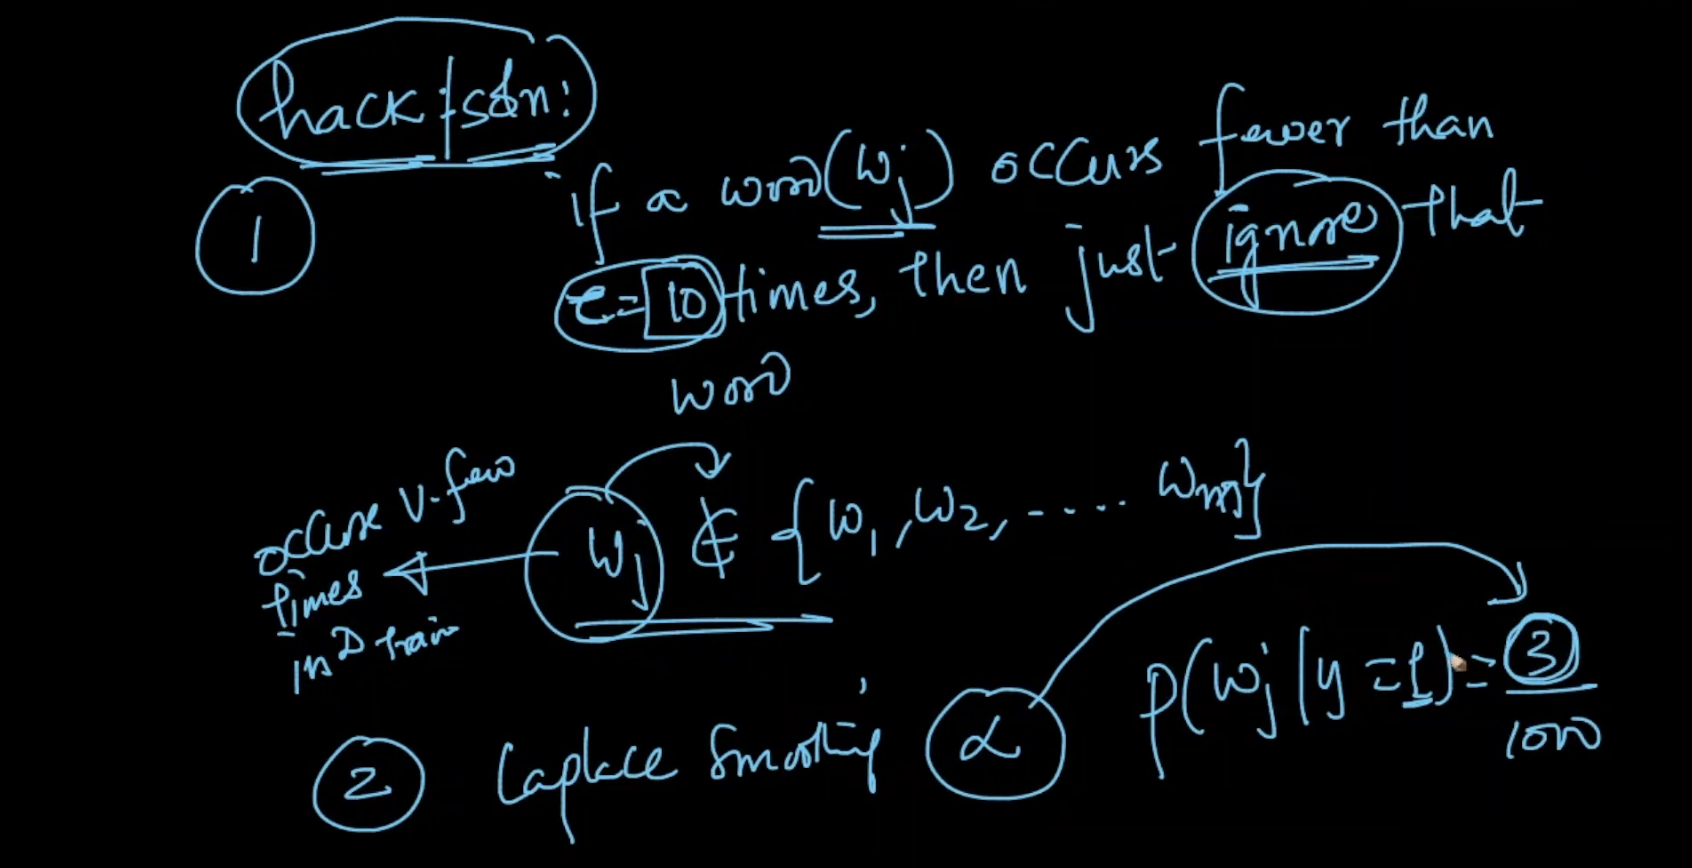 hack | soln:
1
if a word (wj) occurs fewer than
τ = 10 times, then just ignore that
word
occurs v. few
times
in D train
wj ∉ {w1, w2, ..... wm}
2 Laplace Smoothing α
P(wj | y = 1) = 3
1000